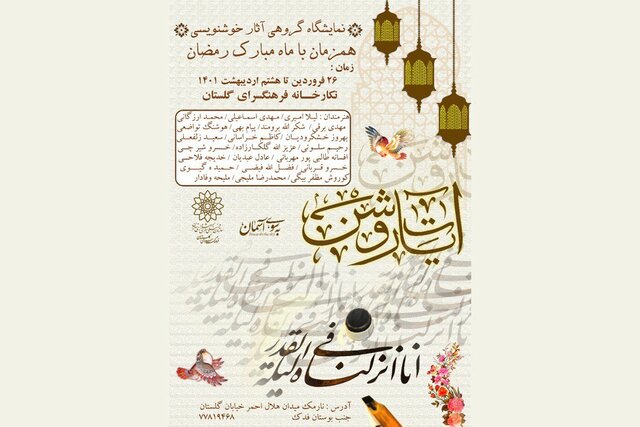 نمایشگاه گروهی آثار خوشنویسی
همزمان با ماه مبارک رمضان
زمان :
۲۶ فروردین تا هشتم اردیبهشت ۱۴۰۱
نگارخانه فرهنگسرای گلستان
هنرمندان : لیلا امیری/ مهدی اسماعیلی/ محمد ارزگانی
مهدی برقی/ شکر الله برومند/ پیام بهی/ هوشنگ تواضعی
بهروز خشکرودیان/ کاظم خراسانی/ سعید زلفعلی
رحیم سلوتی/ عزیز الله گلکارزاده/ خسرو شیر چی
افسانه طالبی پور مهربانی/ عادل عبدیان/ خدیجه فلاحی
خسرو قربانی/ فضل الله فیضی/ حمیده گیوی
کوروش مظفر بیگی/ محمدرضا ملیجی/ ملیحه وفادار
آیات روشن
بسوی آسمان
انا انزلناه فی لیلة القدر
آدرس : نارمک میدان هلال احمر خیابان گلستان
جنب بوستان فدک
۷۷۸۱۹۴۶۸